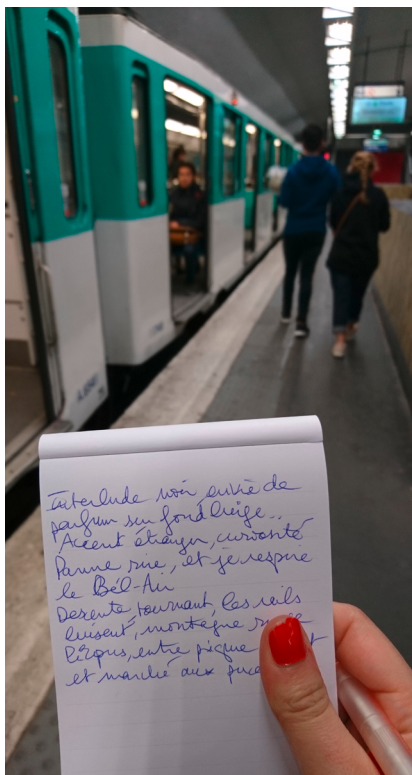 Interlude noir, envie de
parfum sur fond beige..
Accent étranger, curiosité
Panne rire, et je respire
le Bel-Air
Descente, tournant, les rails
luisent, montagne
Picpus, entre pique
et marché aux puces